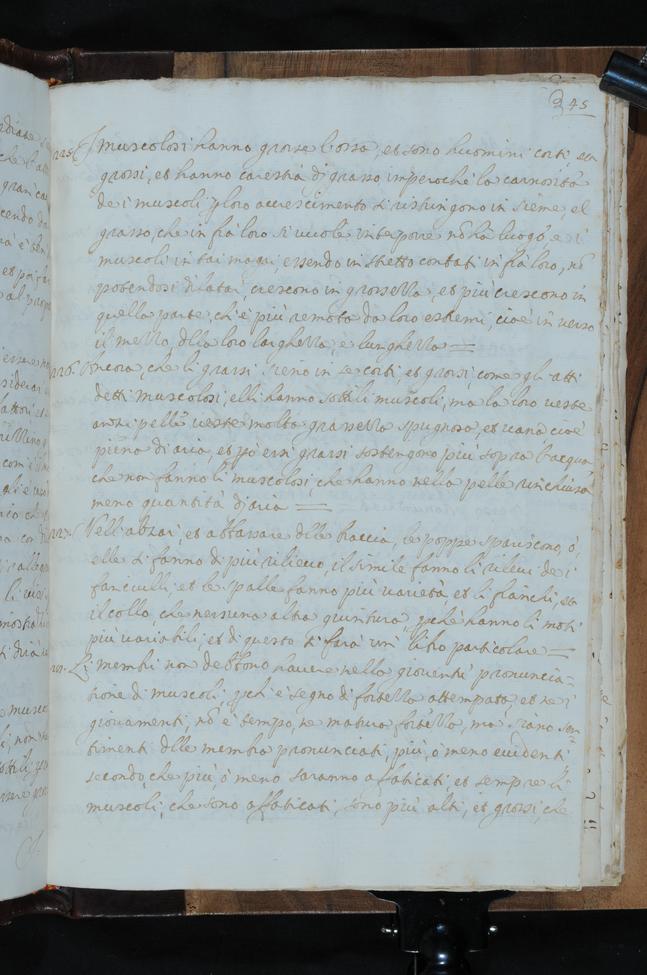 245
225. I muscolosi hanno grosse l'ossa, et sono huomini corti, et
grossi, et hanno carestia di grasso, imperoché la carnosità
de i muscoli p loro accrescimento si ristringono insieme, el
grasso, che infrà loro si vuole interporre nō ha luogo, e i
muscoli in tai magri, essendo in stretto contati infrà loro, nō
potendosi dilatar, crescono in grossezza, et più crescono in
quella parte, ch'è più remota da loro estremi, cioè inverso
il mezzo, della loro larghezza, e lunghezza =
226. Ancora, che li grassi sieno in se corti, et grossi, come gli atti
detti muscolosi, elli hanno sottili muscoli, ma la loro
pelle veste molta grassezza spugnosa, et vana cioè
piena di aria, et p essi grassi sostengono più sopra l'acqua,
che non fanno li muscolosi, che hanno nella pelle rinchiusa
meno quantità d'aria =
227. Nell'alzar, et abbassare delle braccia, le poppe spariscono, ò,
elle si fanno di più rilievo, il simile fanno li rilievi de i
fianchi, et le spalle fanno più varietà, et li fianchi, et
il collo, che nessuna altra giuntura, pchè hanno li moti
più variabili, et di questo si farà un' libro particolare =
Li membri non debbono havere nella gioventù pronuncia-
tione di muscoli, pchè è segno di fortezza attempata, et ne i
giovanenti, nō è tempo, ne matura fortezza, ma siano sen-
timenti delle membra pronunciati, più, ò meno evidenti
secondo, che più, ò meno saranno affaticati, et sempre li
muscoli, che sono affaticati, sono più alti, et grossi, che